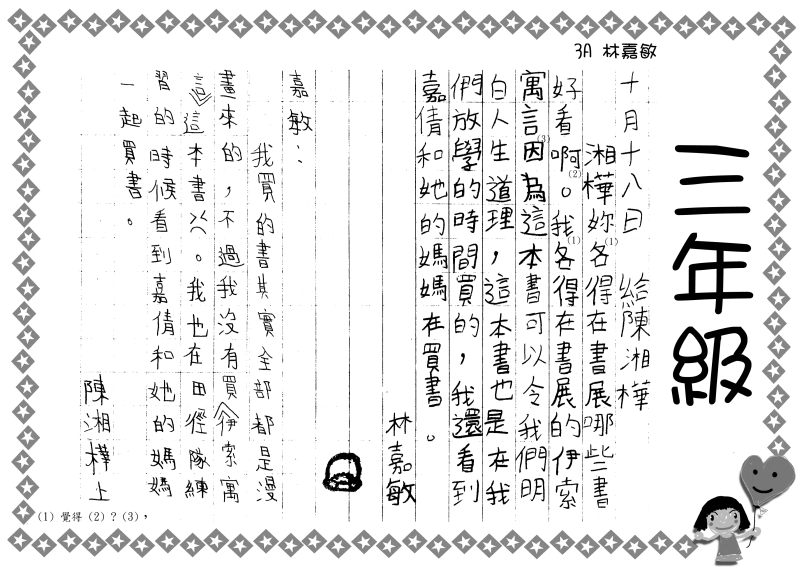 3A 林嘉敏
三年級
十月十八日 給陳湘樺
湘樺妳各(1)得在書展哪些書
好看啊(2)。我各(1)得在書展的伊索
寓言因(3)為這本書可以令我們明
白人生道理,這本書也是在我
們放學的時間買的,我還看到
嘉倩和她的媽媽在買書。
林嘉敏
嘉敏:
我買的書其實全部都是漫
畫來的,不過我沒有買《伊索寓
這本書。我也在田徑隊練
習的時候看到嘉倩和她的媽媽
一起買書。
陳湘樺上
(1) 覺得 (2) ? (3) ,